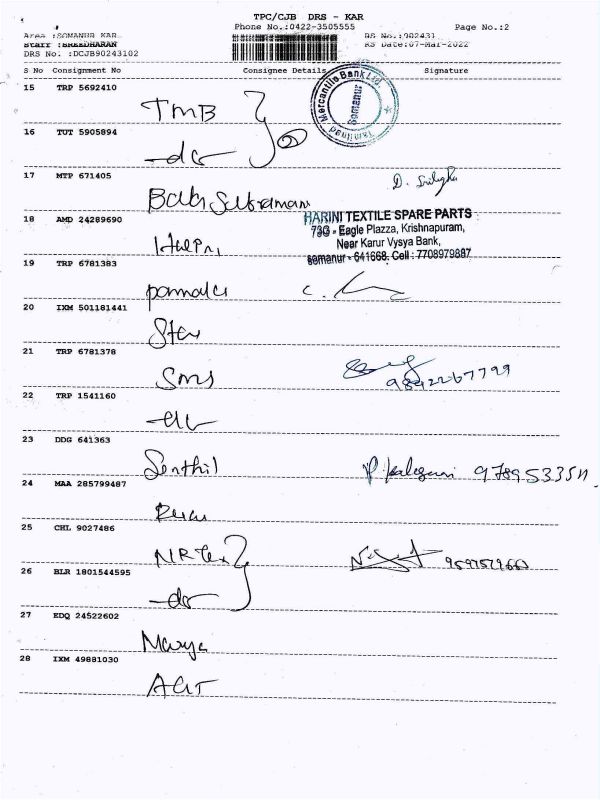 TPC/CJB DRS - KAR
Phone No.:0422-3505555 Page No.:2
Area :SOMANUR KAR
Staff :SREEDHARAN
DRS No. :DCJB90243102
RS No.:902431
RS Date:07-Mar-2022
S No Consignment No Consignee Details Signature
15 TRP 5692410
TMB
Mercantile Bank Ltd.
Somanur
Tamilnad
16 TUT 5905894
-do-
17 MTP 671405
Babu Subraman
18 AMD 24289690
HARINI TEXTILE SPARE PARTS
73G - Eagle Plazza, Krishnapuram,
Near Karur Vysya Bank,
somanur - 641668. Cell : 7708979887
19 TRP 6781383
20 IXM 501181441
Star
21 TRP 6781378
Sms
9842267799
22 TRP 1541160
23 DDG 641363
Senthil
24 MAA 285799487
25 CHL 9027486
NR Tex
26 BLR 1801544595
-do-
27 EDQ 24522602
28 IXM 49881030